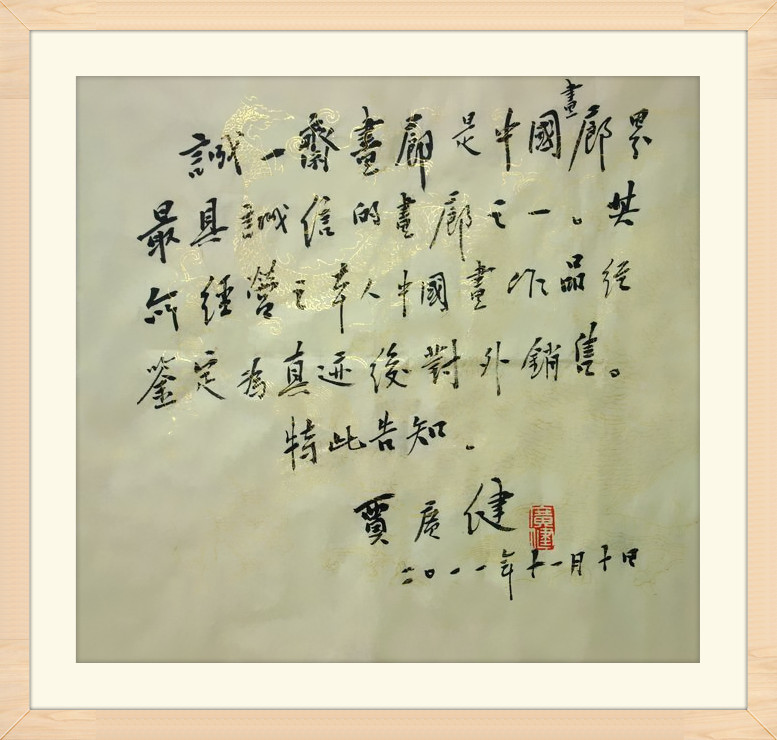 畫
誠一齋畫廊是中國廊界
最具誠信的畫廊之一。其
所經營之本人中國畫作品經
鉴定為真迹後對外銷售。
特此告知.
賈廣健
廣健
二0一一年十一月十日